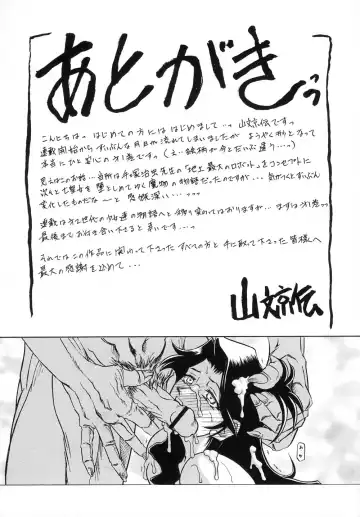 あとがきぅ
こんにちはっ はじめての方にははじめまして…っ 山文京伝ですっ
連載開始からずいぶん月日が流れてしまいましたが ようやく形となって
本当にひと安心の第1巻です。(え…絵柄が今とだいぶ違う…っ)
思えばこのお話…当所は手塚治虫先生の「地上最大のロボット」をコンセプトに
次々と七聖女を堕としてゆく魔物の物語だったのですが… 気がつくとずいぶん
変化したものだな〜と感慨深い…っ
連載は第2世代の少女達の物語へと移り変わっておりますが… まずは第1巻っ
最後までお付き合い下さると幸いですっ
それではこの作品に関わって下さったすべての方と 手に取って下さった皆様へ
最大の感謝を込めて…
山文京伝